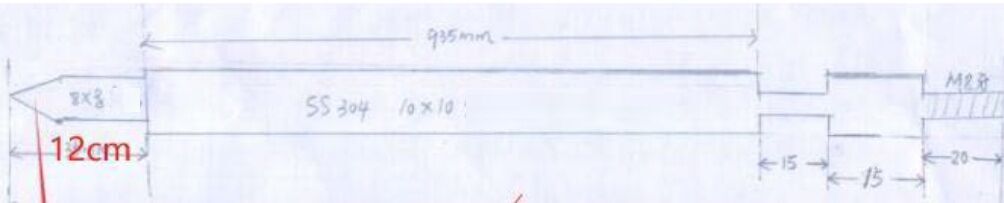 935mm
8×8
SS 304 10×10
12cm
15
15
20